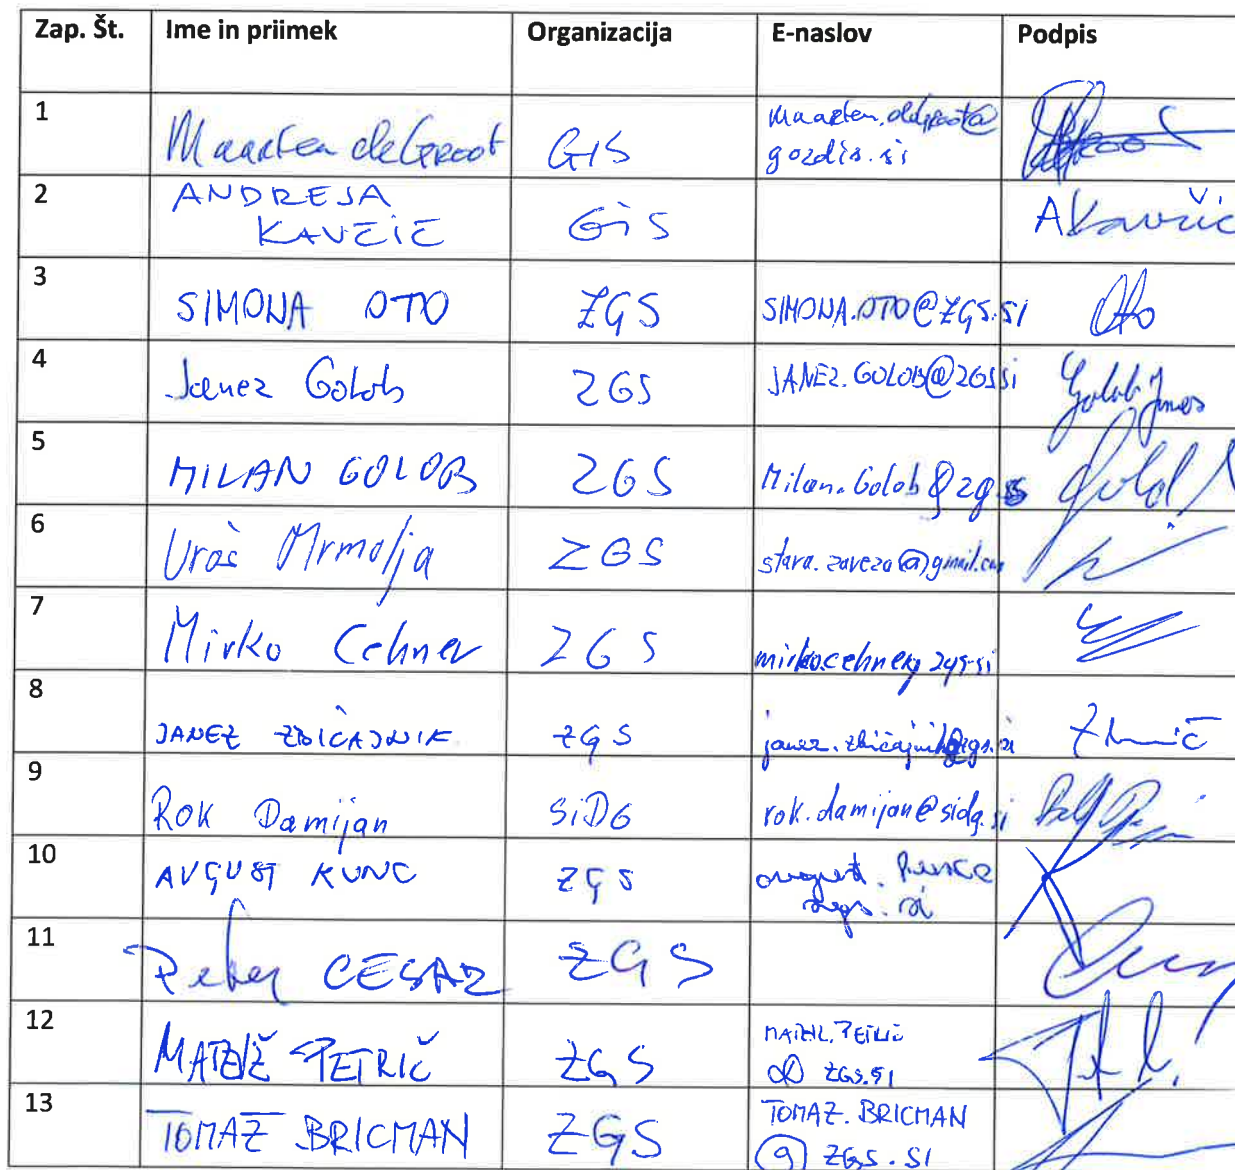 Zap. Št. Ime in priimek Organizacija E-naslov Podpis
1 Maarten de Groot GIS maarten.degroot@
gozdis.si
2 ANDREJA
KAVČIČ GIS AKavčič
3 SIMONA OTO ZGS SIMONA.OTO@ZGS.SI Oto
4 Janez Golob ZGS JANEZ.GOLOB@ZGS.si Golob Janez
5 MILAN GOLOB ZGS Milan.Golob@zgs.si
6 Uroš Mrmolja ZGS stara.zaveza@gmail.com
7 Mirko Cehner ZGS
8 JANEZ ZBIČAJNIK ZGS janez.zbičajnik@zgs.si
9 ROK Damijan SiDG rok.damijan@sidg.si
10 AVGUST KUNC ZGS avgust.kunc@
zgs.si
11 Peter CESAR ZGS
12 MATEJŽ PETRIČ ZGS
@ ZGS.SI
13 TOMAŽ BRICMAN ZGS TOMAZ.BRICMAN
@ ZGS.SI